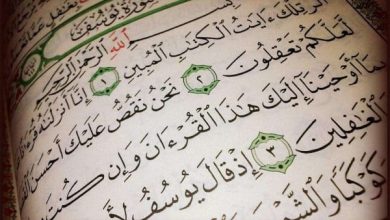 سُورَةُ يُوسُفَ
بِسْمِ اللَّهِ الرَّحْمَٰنِ الرَّحِيمِ
الٓر تِلْكَ ءَايَٰتُ الْكِتَٰبِ الْمُبِينِ ١ إِنَّآ أَنزَلْنَٰهُ قُرْءَٰ
لَّعَلَّكُمْ تَعْقِلُونَ ٢ نَحْنُ نَقُصُّ عَلَيْكَ أَحْسَنَ
بِمَآ أَوْحَيْنَآ إِلَيْكَ هَٰذَا الْقُرْءَانَ وَإِن كُنتَ
الْغَٰفِلِينَ ٣ إِذْ قَالَ يُوسُفُ لِأَ
كَوْكَبًا وَالشَّمْسَ